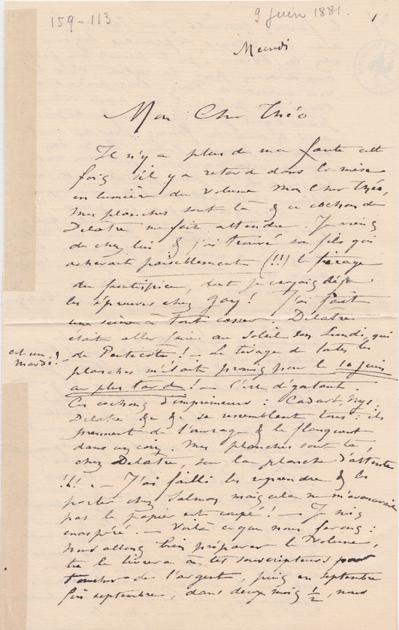 159-113
9 juin 1881.
1
Mon Cher Théo
Il n'y a plus de ma faute cette
fois il y a retard dans la mise
en lumière du volume mon cher Théo,
mes planches sont là & ce cochon de
Delâtre me fait attendre. Je viens
de chez lui & j'ai trouvé son fils qui
achevait paisiblement (!!) le tirage
du frontispice, dont je croyais déjà
les épreuves chez Gay! J'ai fait
une scène à tout casser Delâtre
était allé faire au soleil son lundi, qui
est un mardi!
de Pentecôte! — Le tirage de toutes les
planches m'était promis pour le 10 juin
au plus tard! — C'est dégoûtant!
Ces cochons d'imprimeurs: Cadart,
Delâtre & & se ressemblent tous: ils
prennent de l'ouvrage & le flanquent
dans un coin. Mes planches sont là,
chez Delâtre, sur la planche d'attente
!!! — J'ai failli les reprendre & les
porter chez Salmon mais cela ne m'avancerait
pas le papier est coupé! — Je suis
exaspéré. — Voilà ce que nous ferons:
nous allons bien préparer le volume,
le livrer à tes souscripteurs pour
toucher de l'argent, puis en septembre
fin septembre, dans deux mois ½, nous